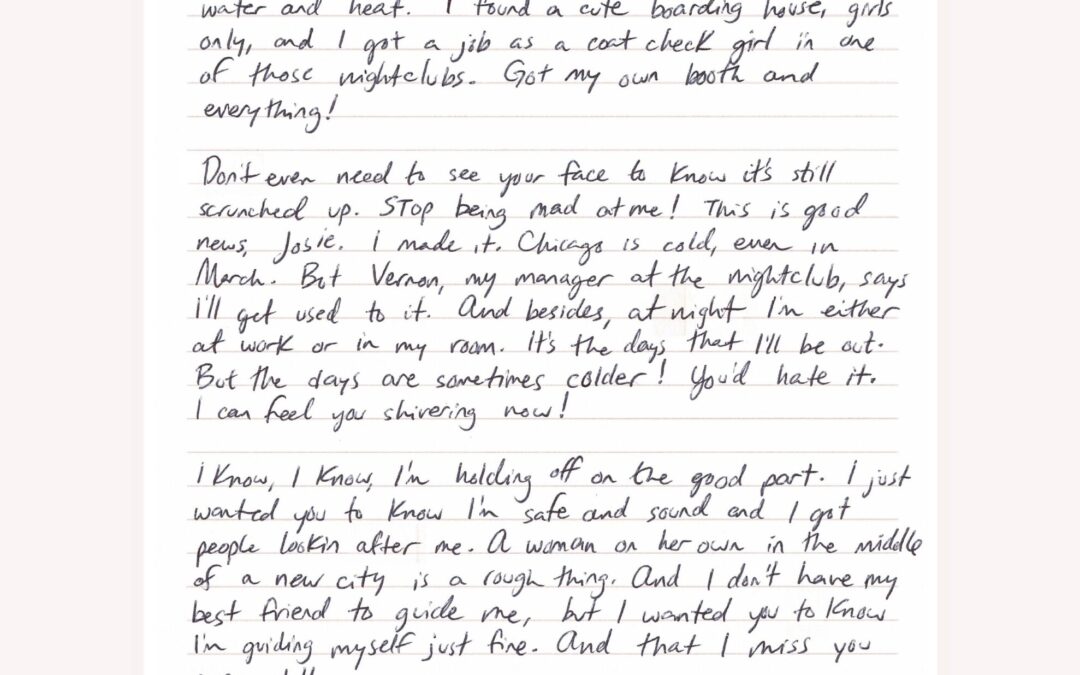 water and heat. I found a cute boarding house, girls
only, and I got a job as a coat check girl in one
of those nightclubs. Got my own booth and
everything!
Don't even need to see your face to know it's still
scrunched up. STOP being mad at me! This is good
news, Josie. I made it. Chicago is cold, even in
March. But Vernon, my manager at the nightclub, says
I'll get used to it. And besides, at night I'm either
at work or in my room. It's the days that I'll be out.
But the days are sometimes colder! You'd hate it.
I can feel you shivering now!
I know, I know, I'm holding off on the good part. I just
wanted you to know I'm safe and sound and I got
people lookin after me. A woman on her own in the middle
of a new city is a rough thing. And I don't have my
best friend to guide me, but I wanted you to know
I'm guiding myself just fine. And that I miss you